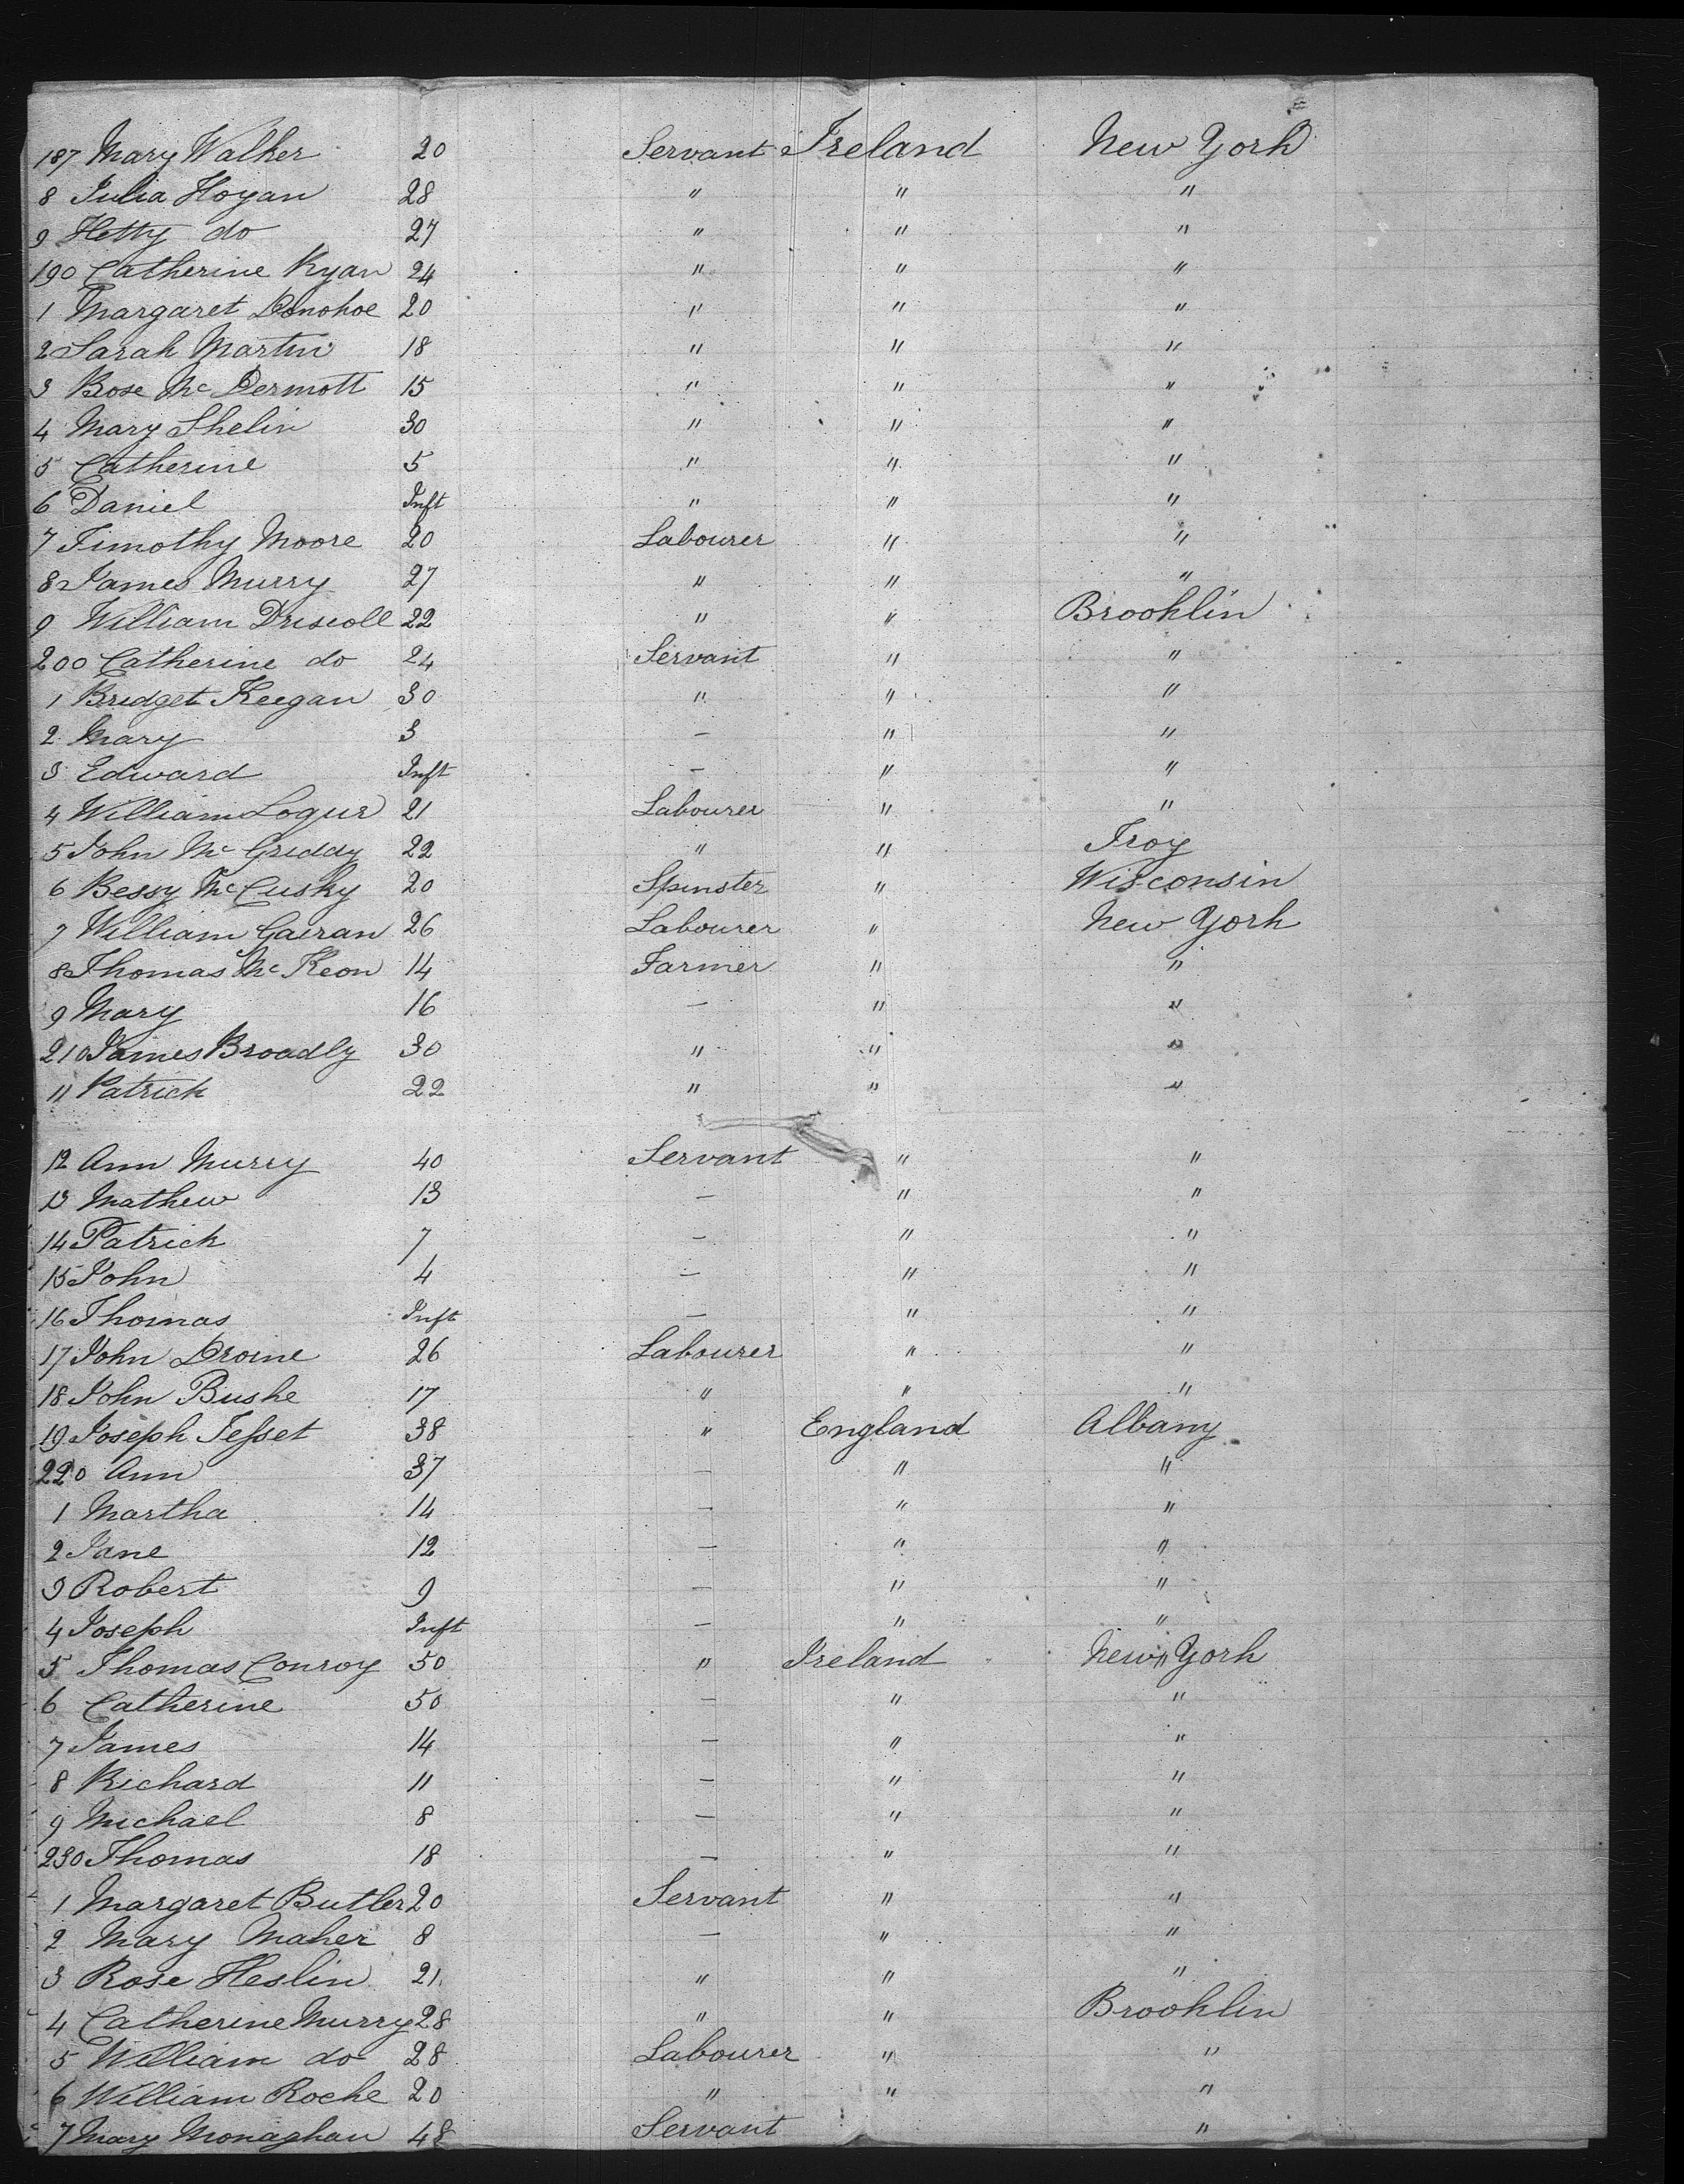 187 Mary Walker 20 Servant Ireland New York
8 Julia Hogan 28 " " "
9 Hetty do 27 " " "
190 Catherine Ryan 24 " " "
1 Margaret Donohoe 20 " " "
2 Sarah Martin 18 " " "
3 Rose Mc Dermott 15 " " "
4 Mary Shelin 30 " " "
5 Catherine 5 " " "
6 Daniel Inft " " "
7 Timothy Moore 20 Labourer " "
8 James Murry 27 " " "
9 William Driscoll 22 " " Brooklin
200 Catherine do 24 Servant " "
1 Bridget Keegan 30 " " "
2 Mary 3 — " "
3 Edward Inft — " "
4 William Logur 21 Labourer " "
5 John Mc Griddy 22 " " Troy
6 Bessy Mc Cusky 20 Spinster " Wisconsin
7 William Gairan 26 Labourer " New York
8 Thomas Mc Keon 14 Farmer " "
9 Mary 16 — " "
210 James Broadly 30 " " "
11 Patrick 22 " " "
12 Ann Murry 40 Servant " "
13 Mathew 13 — " "
14 Patrick 7 — " "
15 John 4 — " "
16 Thomas Inft — " "
17 John Droine 26 Labourer " "
18 John Bushe 17 " " "
19 Joseph Tesset 38 " England Albany
220 Ann 37 — " "
1 Martha 14 — " "
2 Jane 12 — " "
3 Robert 9 — " "
4 Joseph Inft — " "
5 Thomas Conroy 50 " Ireland New York
6 Catherine 50 — " "
7 James 14 — " "
8 Richard 11 — " "
9 Michael 8 — " "
230 Thomas 18 — " "
1 Margaret Butler 20 Servant " "
2 Mary Maher 8 — " "
3 Rose Heslin 21 " " "
4 Catherine Murry 28 " " Brooklin
5 William do 28 Labourer " "
6 William Roche 20 " " "
7 Mary Monaghan 48 Servant "